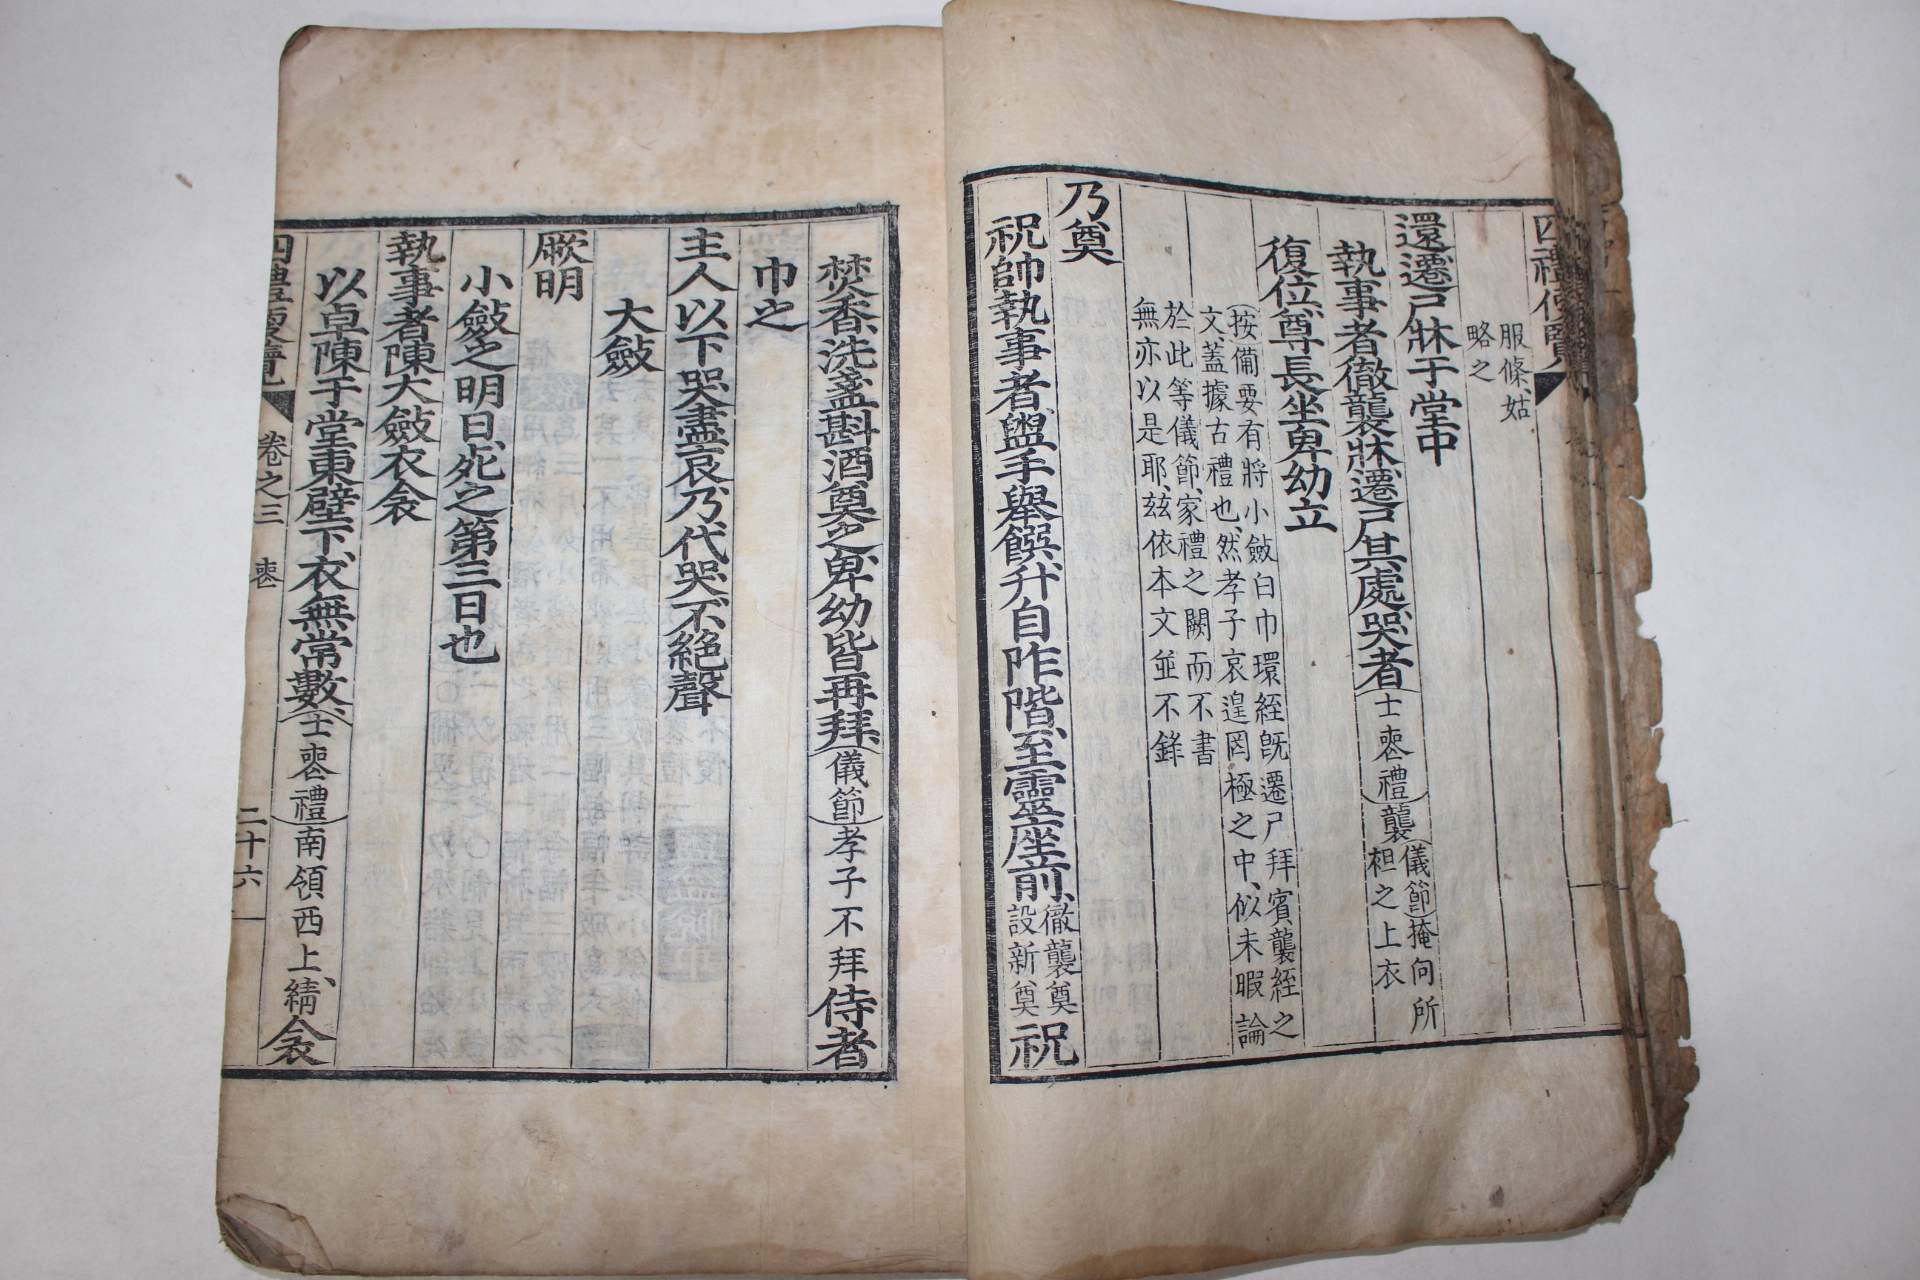 四禮便覽
服條姑
略之
還遷尸牀于堂中
執事者徹襲牀遷尸其處哭者士喪禮襲儀節掩向所
袒之上衣
復位尊長坐卑幼立
按備要有將小斂白巾環絰旣遷尸拜賓襲絰之
文蓋據古禮也然孝子哀遑罔極之中似未暇論
於此等儀節家禮之闕而不書
無亦以是耶玆依本文並不錄
乃奠
祝帥執事者盥手擧饌升自阼階至靈座前徹襲奠
設新奠祝
焚香洗盞斟酒奠之卑幼皆再拜儀節孝子不拜侍者
巾之
主人以下哭盡哀乃代哭不絶聲
大斂
厥明
小斂之明日死之第三日也
執事者陳大斂衣衾
以卓陳于堂東壁下衣無常數士喪禮南領西上綪衾
四禮便覽 卷之三 喪 二十六